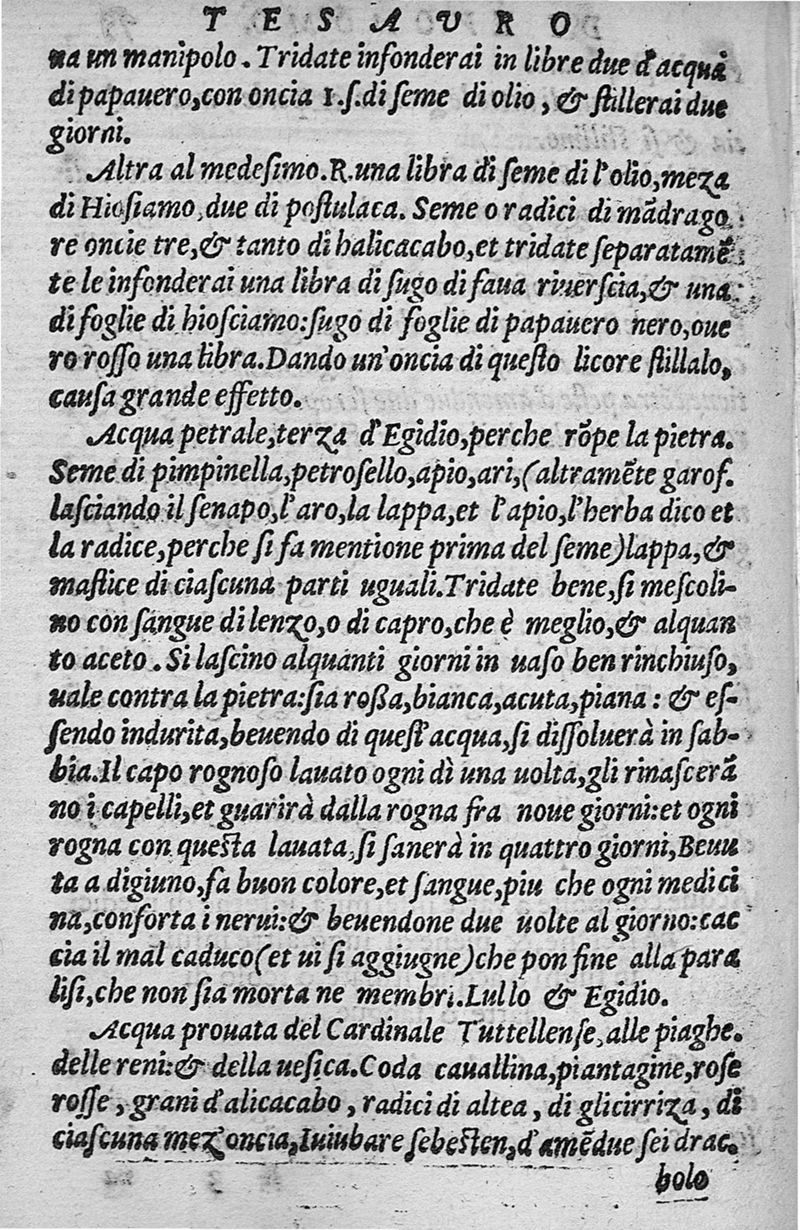 TESAURO
na un manipolo. Tridate infonderai in libre due d'acqua
di papauero, con oncia 1.ſ. di ſeme di olio, & ſtillerai due
giorni.
Altra al medeſimo. R. una libra di ſeme di l'olio, meza
di Hioſiamo, due di poſtulaca. Seme o radici di mādrago
re oncie tre, & tanto di halicacabo, et tridate ſeparatamē
te le infonderai una libra di ſugo di faua riuerſcia, & una
di foglie di hioſciamo: ſugo di foglie di papauero nero, oue
ro roſſo una libra. Dando un'oncia di queſto licore ſtillalo,
cauſa grande effetto.
Acqua petrale, terza d'Egidio, perche rōpe la pietra.
Seme di pimpinella, petroſello, apio, ari, (altramēte garof.
laſciando il ſenapo, l'aro, la lappa, et l'apio, l'herba dico et
la radice, perche ſi fa mentione prima del ſeme) lappa, &
maſtice di ciaſcuna parti uguali. Tridate bene, ſi meſcoli-
no con ſangue di lenzo, o di capro, che è meglio, & alquan
to aceto. Si laſcino alquanti giorni in uaſo ben rinchiuſo,
uale contra la pietra: ſia roßa, bianca, acuta, piana: & eſ-
ſendo indurita, beuendo di queſt'acqua, ſi diſſoluerà in ſab-
bia. Il capo rognoſo lauato ogni dì una uolta, gli rinaſcerā
no i capelli, et guarirà dalla rogna fra noue giorni: et ogni
rogna con queſta lauata, ſi ſanerà in quattro giorni, Beuu
ta a digiuno, fa buon colore, et ſangue, piu che ogni medici
na, conforta i nerui: & beuendone due uolte al giorno: cac
cia il mal caduco (et ui ſi aggiugne) che pon fine alla para
liſi, che non ſia morta ne membri. Lullo & Egidio.
Acqua prouata del Cardinale Tuttellenſe, alle piaghe.
delle reni: & della ueſica. Coda cauallina, piantagine, roſe
roſſe, grani d'alicacabo, radici di altea, di glicirriza, di
ciaſcuna mez'oncia, Iuiubare ſebeſten, d'amēdue ſei drac.
bolo